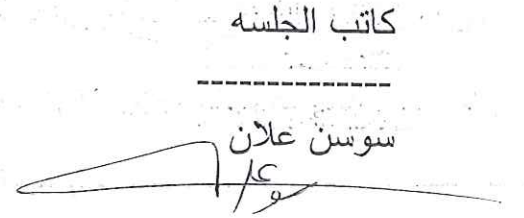 كاتب الجلسه
---------------
سوسن علان